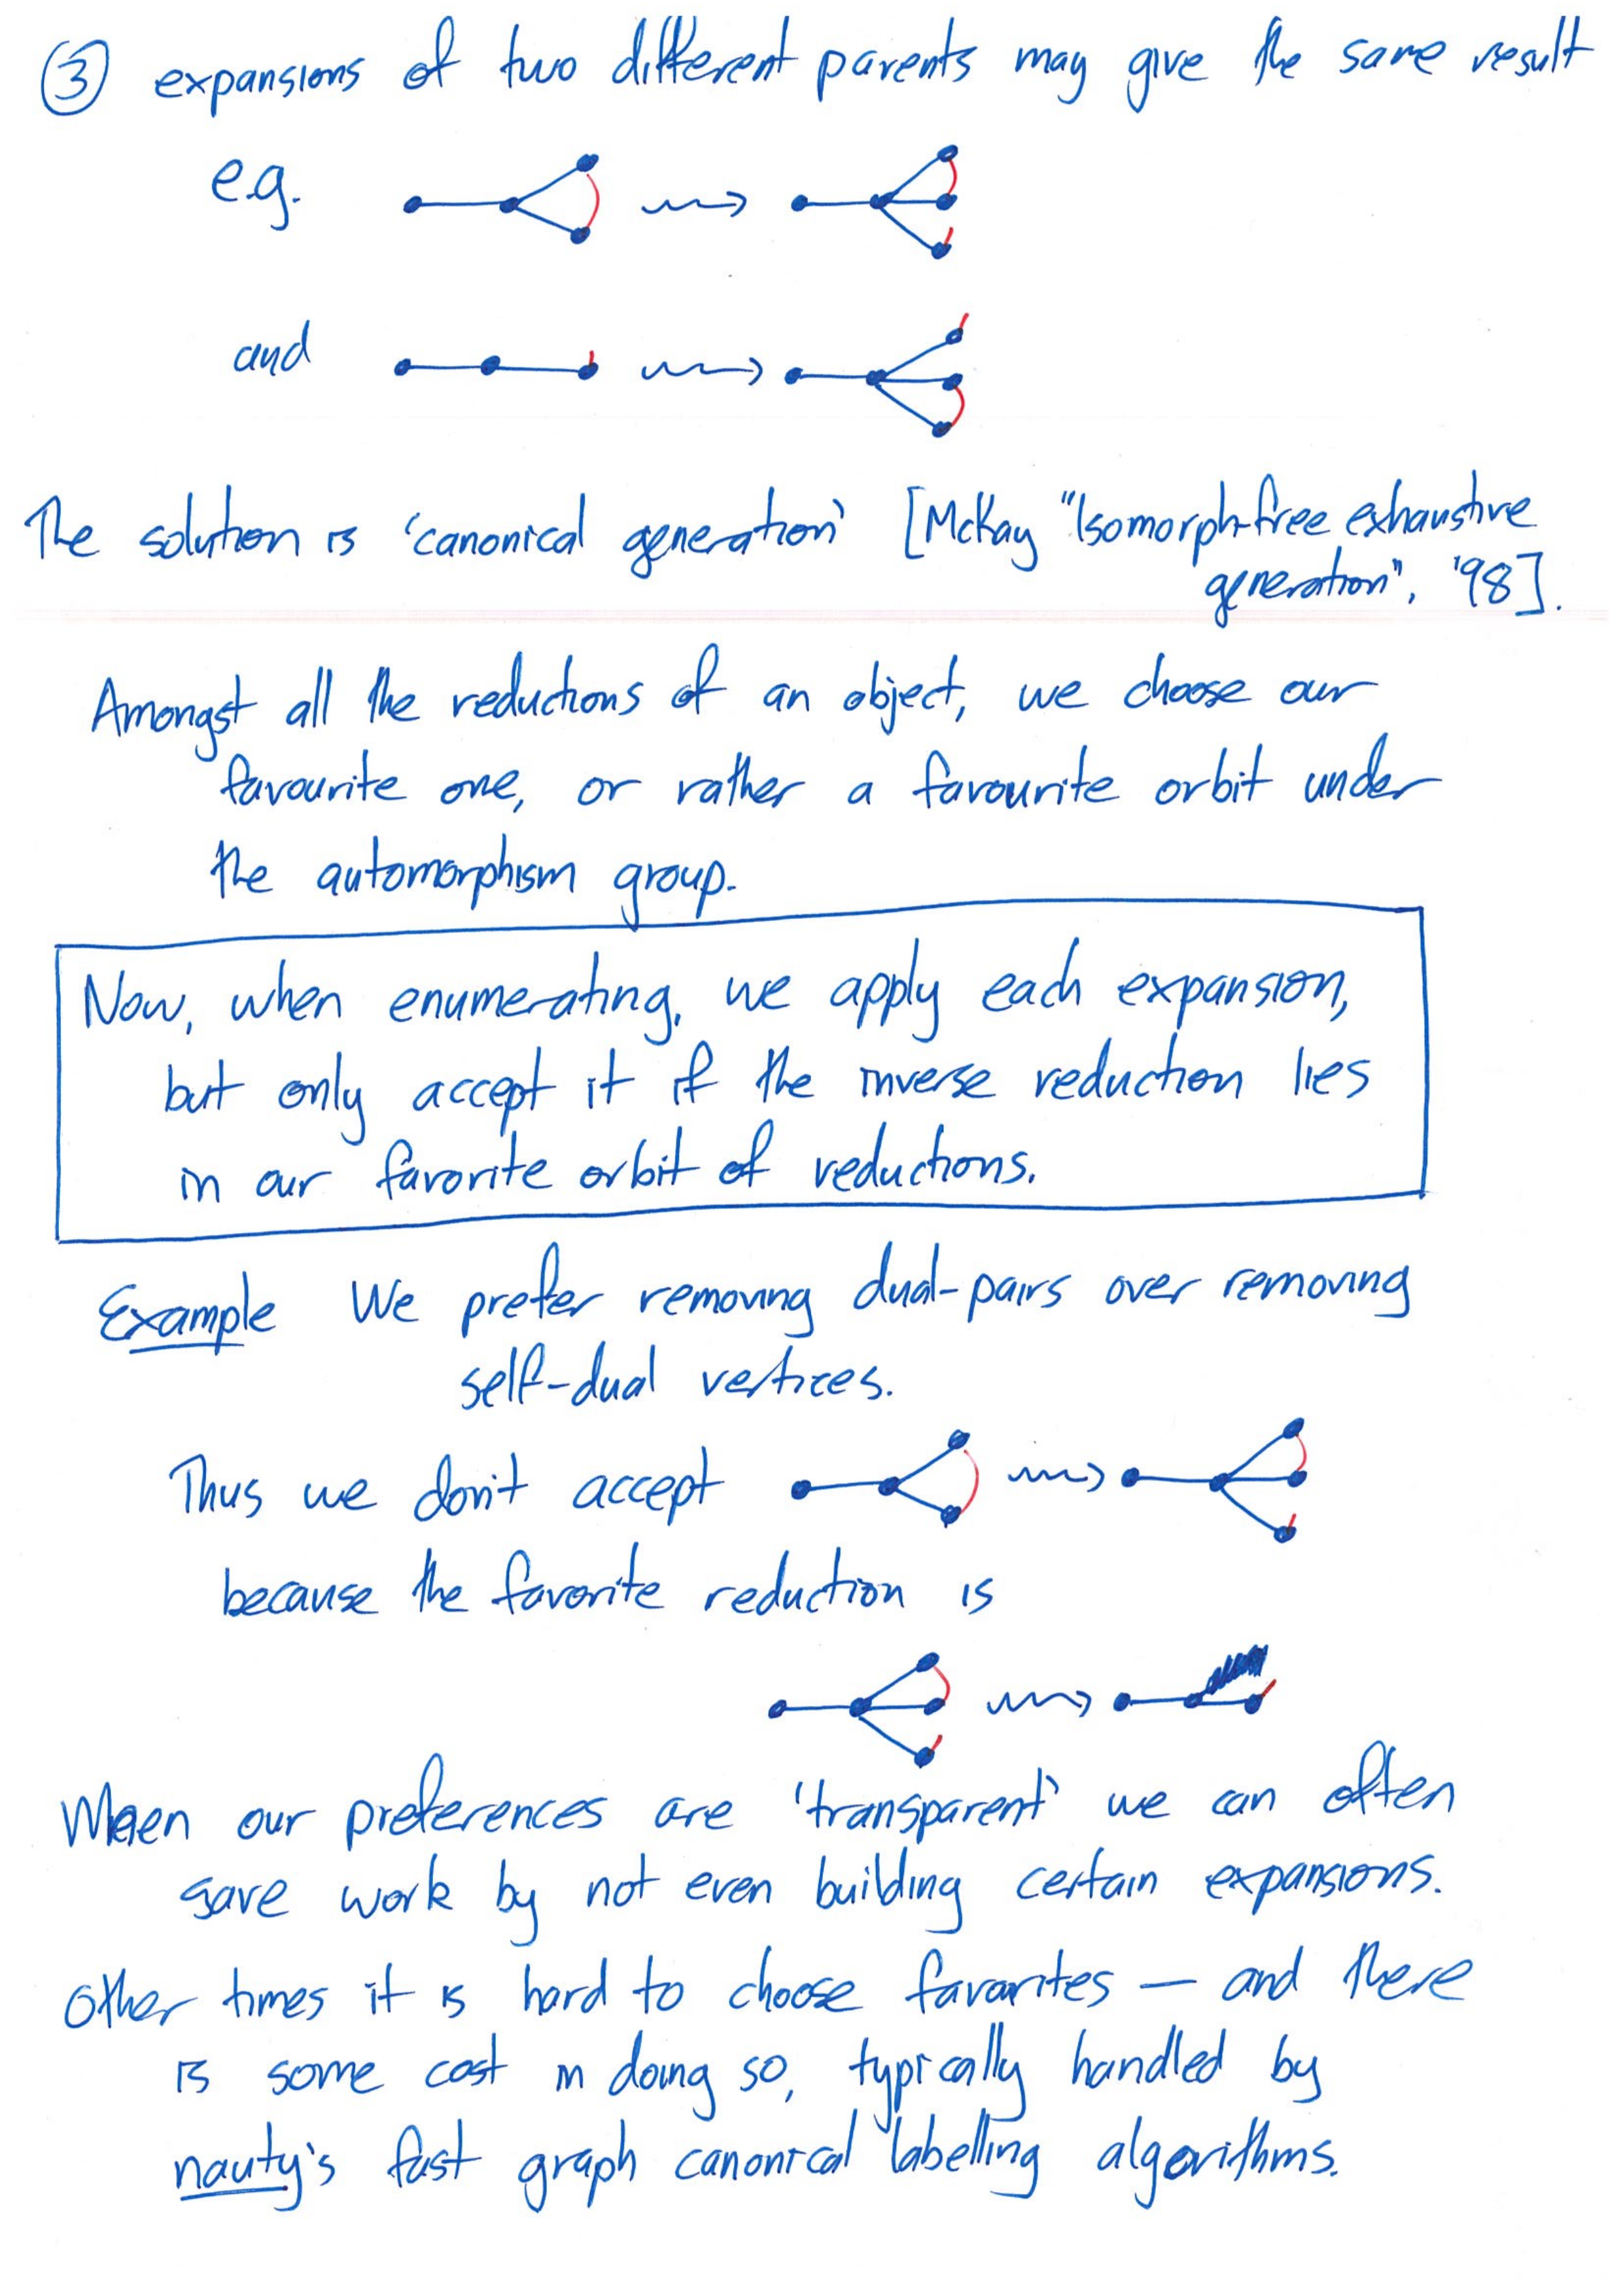 ③ expansions of two different parents may give the same result
e.g.
and
The solution is 'canonical generation' [McKay "Isomorph-free exhaustive
generation", '98].
Amongst all the reductions of an object, we choose our
favourite one, or rather a favourite orbit under
the automorphism group.
Now, when enumerating, we apply each expansion,
but only accept it if the inverse reduction lies
in our favorite orbit of reductions.
Example We prefer removing dual-pairs over removing
self-dual vertices.
Thus we don't accept
because the favorite reduction is
When our preferences are 'transparent' we can often
save work by not even building certain expansions.
Other times it is hard to choose favorites — and there
is some cost in doing so, typically handled by
nauty's fast graph canonical labelling algorithms.